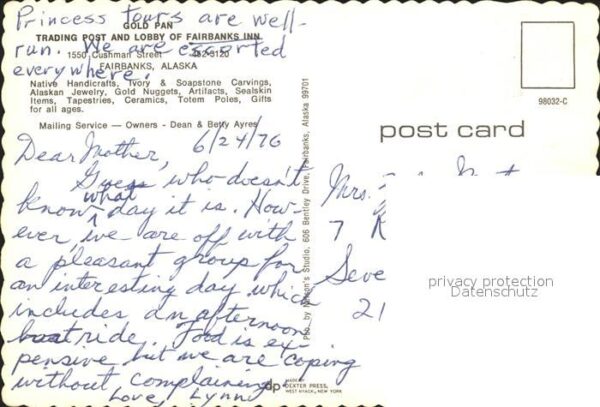 Princess tours are well-
run. We are escorted
everywhere.
GOLD PAN
TRADING POST AND LOBBY OF FAIRBANKS INN
1550 Cushman Street 452-3120
FAIRBANKS, ALASKA
Native Handicrafts, Ivory & Soapstone Carvings,
Alaskan Jewelry, Gold Nuggets, Artifacts, Sealskin
Items, Tapestries, Ceramics, Totem Poles, Gifts
for all ages.
Mailing Service — Owners - Dean & Betty Ayres
6/24/76
Dear Mother,
Guess who doesn't
know what day it is. How-
ever, we are off with
a pleasant group for
an interesting day which
includes an afternoon
boat ride. Food is ex-
pensive but we are coping
without complaining.
Love, Lynn
Pho. by Nelson's Studio, 606 Bentley Drive, Fairbanks, Alaska 99701
98032-C
post card
Mrs.
7
Seve
21
privacy protection
Datenschutz
dp MADE BY
DEXTER PRESS,
WEST NYACK, NEW YORK